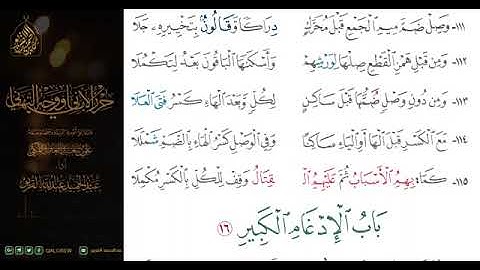 ١١١- وَصِلْ ضَمَّ مِيمِ الْجَمْعِ قَبْلَ مُحَرَّكٍ دِرَاكًا وَقَالُونٌ بِتَخْيِيرِهِ جَلَا
١١٢- وَمِن قَبْلِ هَمْزِ الْقَطْعِ صِلْهَا لِوَرْشِهِمْ وَأَسْكَنَهَا الْبَاقُونَ بَعْدُ لِتَكْمُلَا
١١٣- وَمِن دُونِ وَصْلٍ ضُمَّهَا قَبْلَ سَاكِنٍ لِكُلٍّ وَبَعْدَ الْهَاءِ كَسْرُ فَتَى الْعَلَا
١١٤- مَعَ الْكَسْرِ قَبْلَ الْهَا أَوِ الْيَاءِ سَاكِنًا وَفِي الْوَصْلِ كَسْرُ الْهَاءِ بِالضَّمِّ شَمْلَلَا
١١٥- كَمَا بِهِمُ الْأَسْبَابُ ثُمَّ عَلَيْهِمُ الْ قِتَالُ وَقِفْ لِلْكُلِّ بِالْكَسْرِ مُكْمِلَا
بَابُ الْإِدْغَامِ الْكَبِيرِ (١٦)
حرز الأماني ووجه التهاني